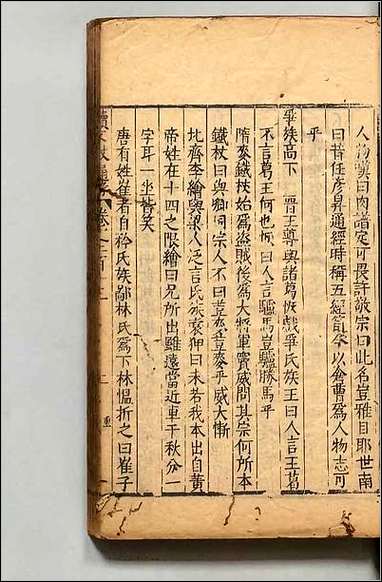 人物漢曰肉譜定可畏許敬宗曰此名豈雅目耶世南
曰昔任彦昇通經時稱五經笥今以倉曹爲人物志可
乎
舉族高下 晉王導與諸葛恢戲爭氏族王曰人言王葛
不言葛王何也恢曰人言驢馬豈驢勝馬乎
隋麥鐵杖始爲盜賊後爲大將軍竇威問其宗何所本
鐵杖曰與卿同宗人不曰荳麥荳麥乎威大慚
北齊李繪與梁人泛言氏族袁狎曰未若我本出自黄
帝姓在十四之限繪曰兄所出雖遠當近車千秋分一
字耳一坐皆笑
唐有姓崔者自矜氏族鄙林氏爲下林愠折之曰崔子